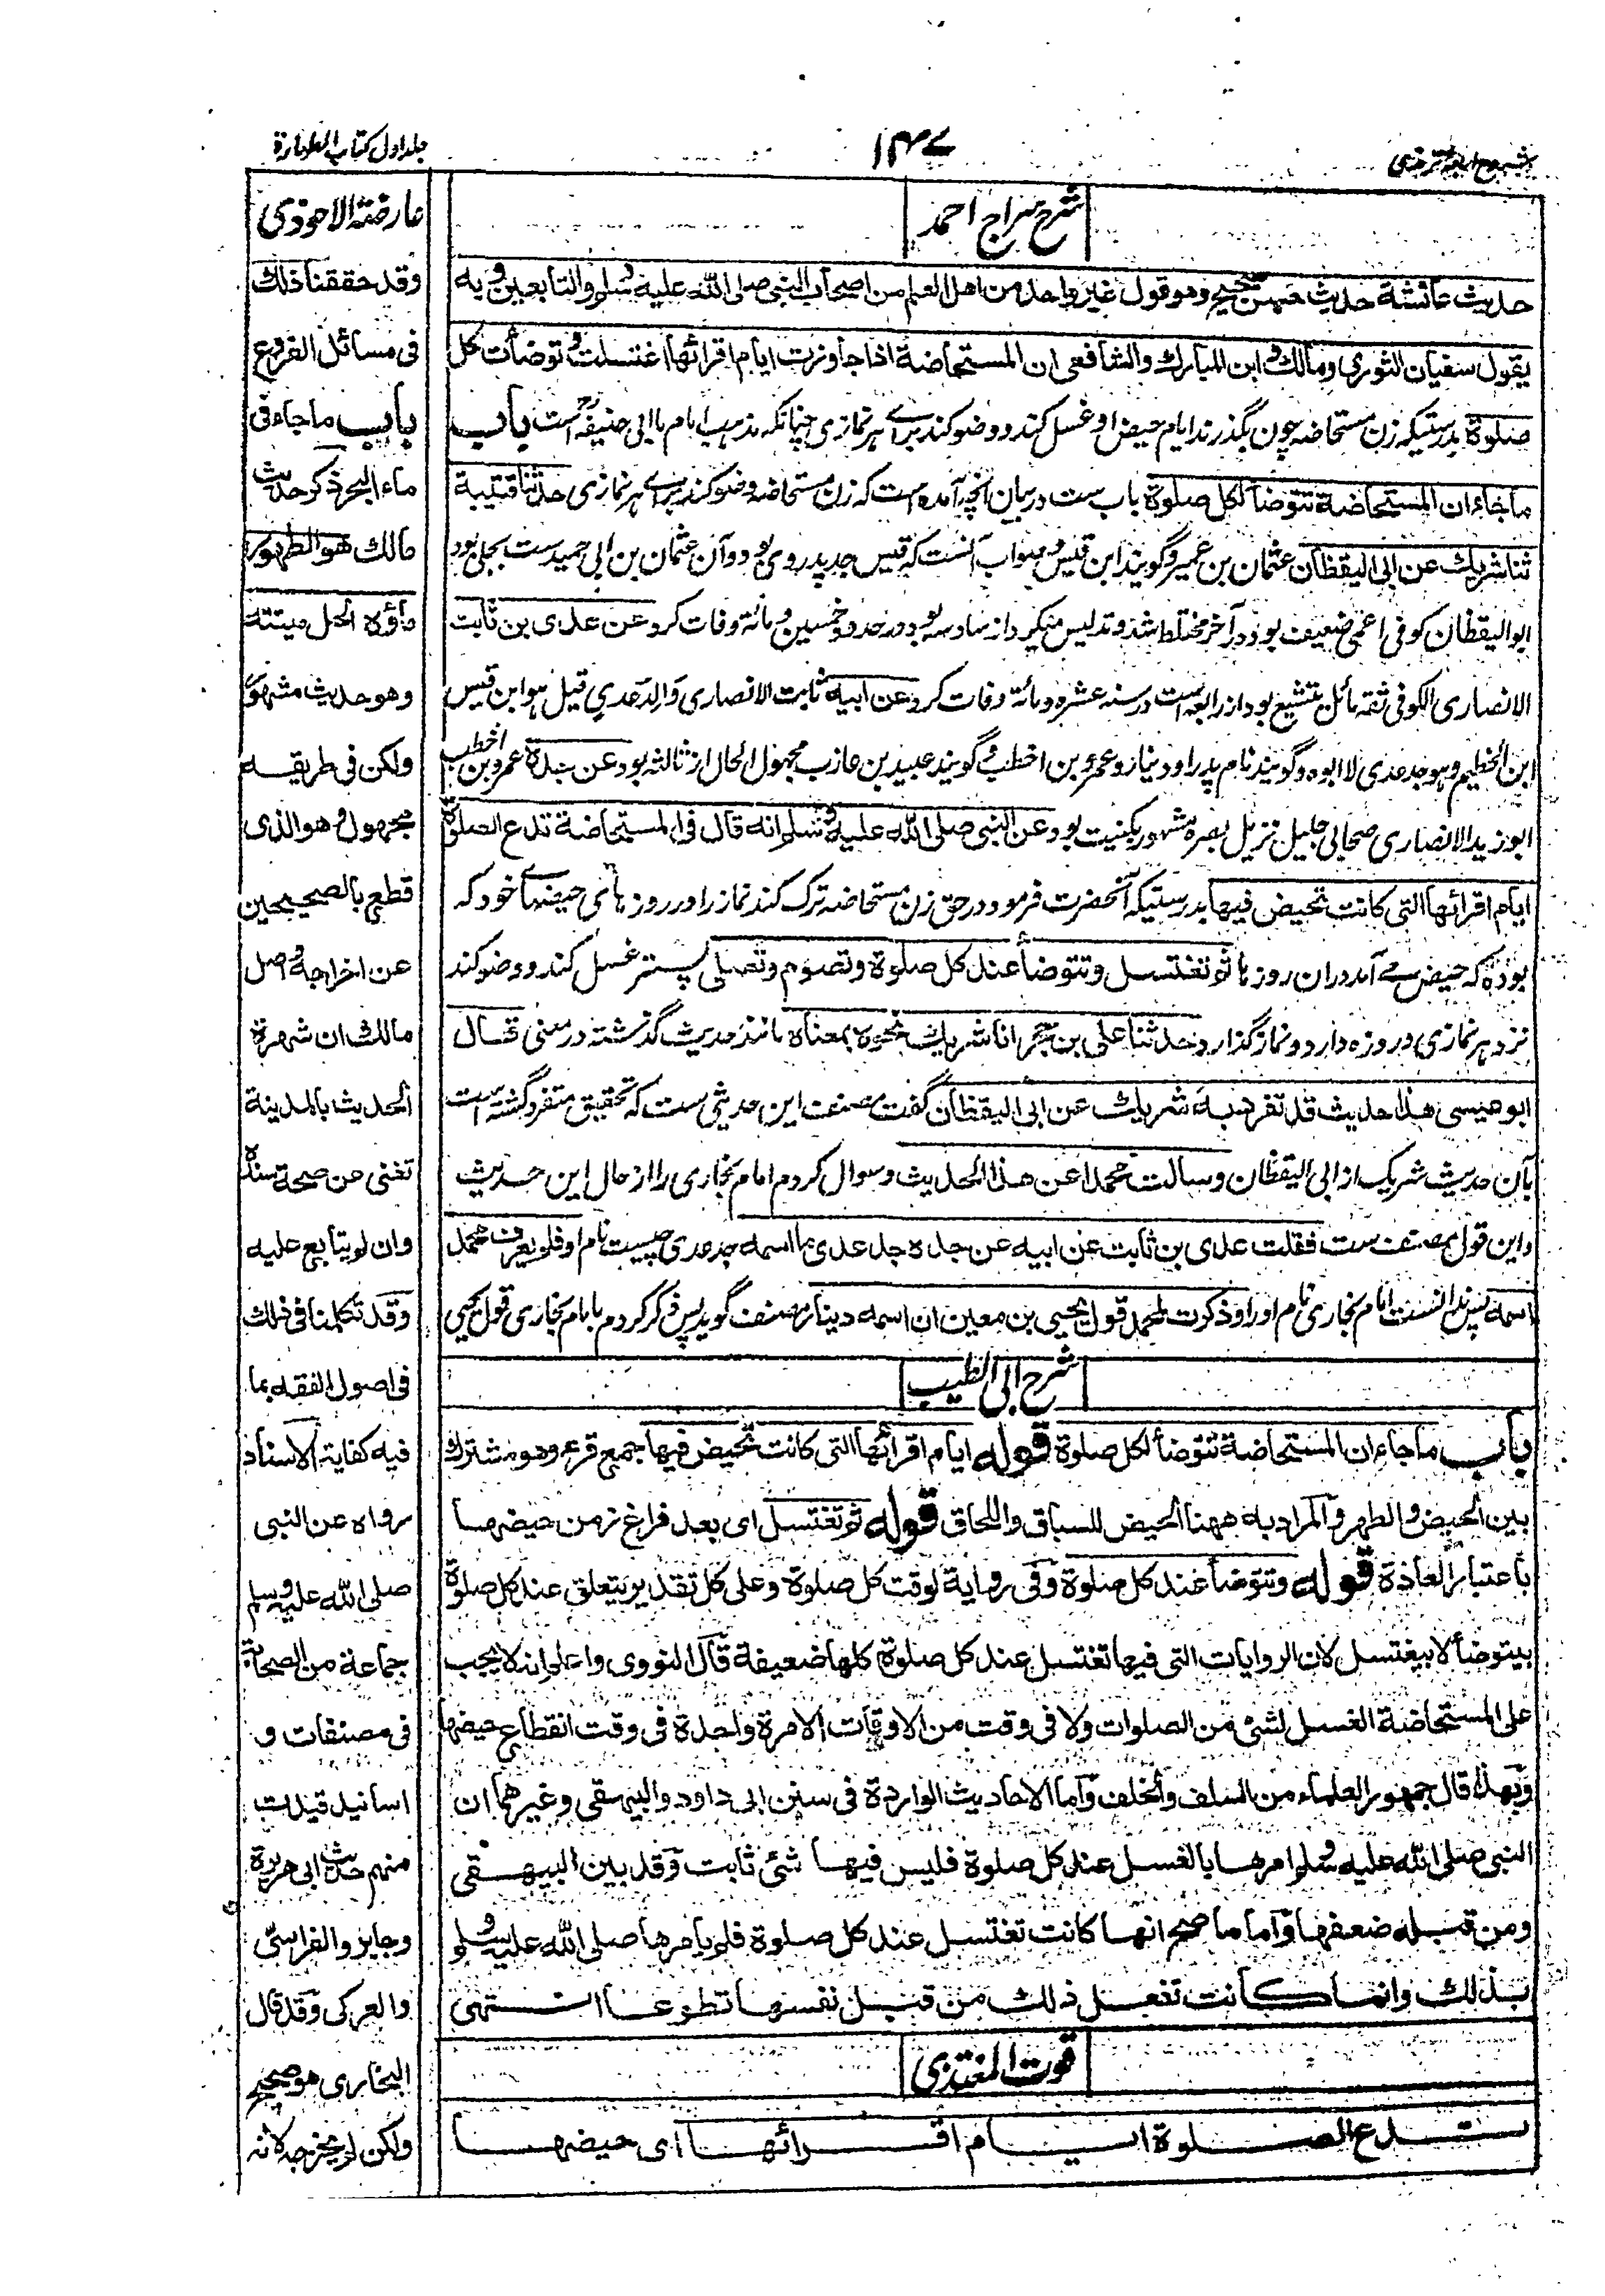 شروح اربعہ ترمذی
۱۴۷
جلد اول کتاب الطهارة
شرح سراج احمد
حدیث عائشة حدیث حسن صحیح وهو قول غیر واحد من اهل العلم من اصحاب النبی صلی الله علیه وسلم والتابعین وبه
یقول سفیان الثوری ومالک وابن المبارک والشافعی ان المستحاضة اذا جاوزت ایام اقرائها اغتسلت وتوضأت لکل
صلوة بدرستیکه زن مستحاضه چون بگذرند ایام حیض او غسل کند ووضو کند برائے هر نمازی چنانکه مذهب امام ما ابی حنیفه است باب
ما جاء ان المستحاضة تتوضأ لکل صلوة باب ست در بیان آنچه آمده است که زن مستحاضه وضو کند برائے هر نمازی حدثنا قتیبة
ثنا شریک عن ابی الیقظان عثمان بن عمیر وگویند ابن قیس وصواب آنست که قیس جد پدر وی بود وآن عثمان بن ابی حمید ست بجلی بود
ابو الیقظان کوفی اعمی ضعیف بود در آخر مختلط شد وتدلیس میکرد از سادسه بود در حدود خمسین ومائة وفات کرد عن عدی بن ثابت
الانصاری الکوفی ثقه مائل بتشیع بود از رابعه است در سنه عشره ومائة وفات کرد عن ابیه ثابت الانصاری والد عدی قیل هو ابن قیس
ابن الخطیم وهو جد عدی لا ابوه وگویند نام پدر او دینار وعمرو بن اخطب وگویند عبید بن عازب مجهول الحال از ثالثه بود عن جده عمرو بن اخطب
ابو زید الانصاری صحابی جلیل نزیل بصره مشهور بکنیت بود عن النبی صلی الله علیه وسلم انه قال فی المستحاضة تدع الصلوة
ایام اقرائها التی کانت تحیض فیها بدرستیکه آنحضرت فرمود در حق زن مستحاضه ترک کند نماز را در روز های حیضهاے خود که
بوده که حیض مے آمد دران روز ها ثم تغتسل وتتوضأ عند کل صلوة وتصوم وتصلی پستر غسل کند ووضو کند
نزد هر نمازی وروزه دارد ونماز گذارد حدثنا علی بن حجر انا شریک نحوه بمعناه مانند حدیث گذشته در معنی قال
ابو عیسی هذا حدیث قد تفرد به شریک عن ابی الیقظان گفت مصنف این حدیثی ست که تحقیق متفرد گشته است
بآن حدیث شریک از ابی الیقظان وسالت محمدا عن هذا الحدیث وسوال کردم امام بخاری را از حال این حدیث
واین قول مصنف ست فقلت عدی بن ثابت عن ابیه عن جده جد عدی ما اسمه جد عدی چیست نام او فلم یعرف محمد
اسمه پس ندانست امام بخاری نام او را وذکرت لمحمد قول یحیی بن معین ان اسمه دینار مصنف گوید پس ذکر کردم با امام بخاری قول یحیی
شرح ابی الطیب
باب ما جاء ان المستحاضة تتوضأ لکل صلوة قوله ایام اقرائها التی کانت تحیض فیها جمع قرء وهو مشترک
بین الحیض والطهر والمراد به ههنا الحیض للسباق واللحاق قوله ثم تغتسل ای بعد فراغ زمن حیضها
باعتبار العادة قوله وتتوضأ عند کل صلوة وفی روایة لوقت کل صلوة وعلی کل تقدیر یتعلق عند کل صلوة
بیتوضأ لا بیغتسل لان الروایات التی فیها تغتسل عند کل صلوة کلها ضعیفة قال النووی واعلم انه لا یجب
علی المستحاضة الغسل لشئ من الصلوات ولا فی وقت من الاوقات الا مرة واحدة فی وقت انقطاع حیضها
وبهذا قال جمهور العلماء من السلف والخلف واما الاحادیث الواردة فی سنن ابی داود والبیهقی وغیرهما ان
النبی صلی الله علیه وسلم امرها بالغسل عند کل صلوة فلیس فیها شئ ثابت وقد بین البیهقی
ومن قبله ضعفها واما ما صح انها کانت تغتسل عند کل صلوة فلم یأمرها صلی الله علیه وسلم
بذلک وانما کانت تفعل ذلک من قبل نفسها تطوعا انتهی
قوت المغتذی
تدع الصلوة ایام اقرائها ای حیضها
عارضة الاحوذی
وقد حققنا ذلک
فی مسائل الفروع
باب ما جاء فی
ماء البحر ذکر حدیث
مالک هو الطهور
ماؤه الحل میتته
وهو حدیث مشهور
ولکن فی طریقه
مجهول وهو الذی
قطع بالصحیحین
عن اخراجه واصل
مالک ان شهرة
الحدیث بالمدینة
تغنی عن صحة سنده
وان لم یتابع علیه
وقد تکلمنا فی ذلک
فی اصول الفقه بما
فیه کفایة الاسناد
رواه عن النبی
صلی الله علیه وسلم
جماعة من الصحابة
فی مصنفات و
اسانید قیدت
منهم حدیث ابی هریرة
وجابر والفراسی
والعرکی وقد قال
البخاری هو صحیح
ولکن لم یخرجه لانه